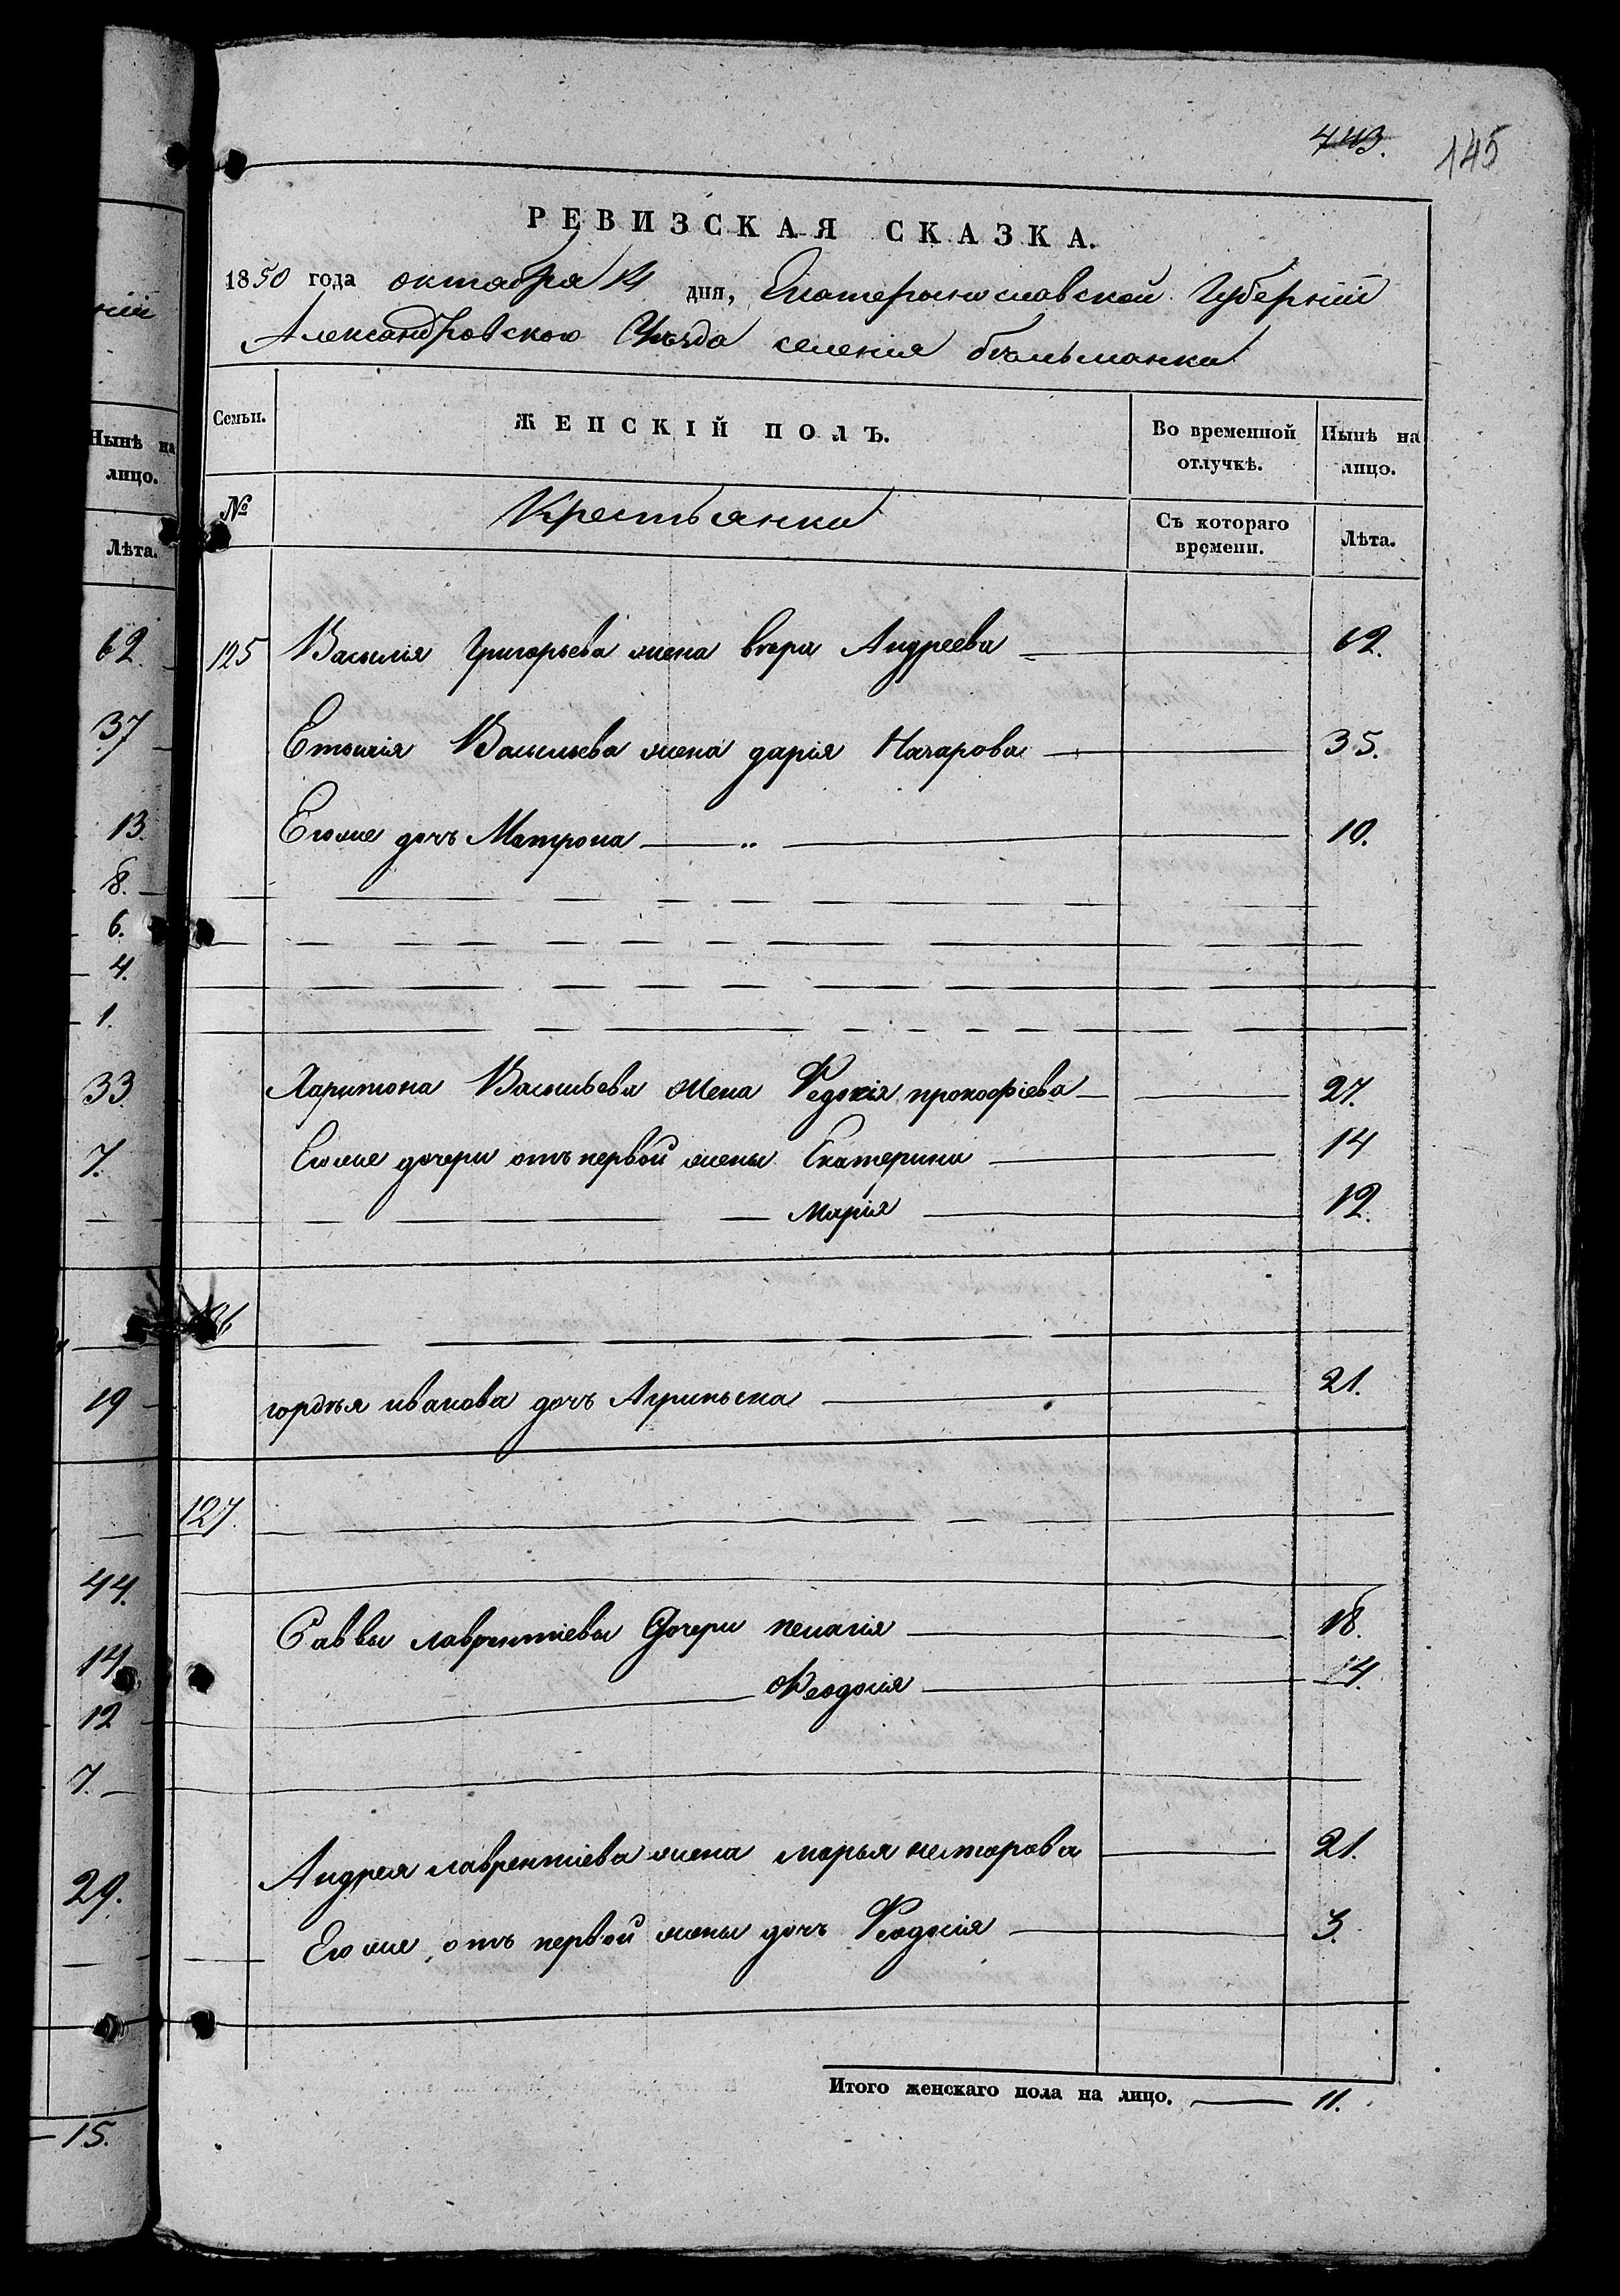 нiй
Нынѣ на
лицо.
Лѣта.
62.
37
13.
8.
6.
4.
1.
33.
7.
19
44.
14
12
7.
29.
15.
443.
145
РЕВИЗСКАЯ СКАЗКА.
1850 года октября 14 дня, Екатеринославской Губернiи
Александровского Уѣзда селенiя бѣльманки
Семьи.
ЖЕНСКІЙ ПОЛЪ.
Во временной
отлучкѣ.
Нынѣ на
лицо.
№
Крестьянки
Съ котораго
времени.
Лѣта.
125 Василiя Григорьева жена вѣра Андреева 62.
Васильева жена дарiя Назарова 35.
Его же дочь Матрона 10.
Харитона Васильева жена прокофiева 27.
Его же дочери отъ первой жены Екатерина 14
Марiя 12.
126
гордѣя иванова дочь 21.
127.
Саввы лаврентiева Дочери пелагiя 18.
Феодосiя 14.
Андрея лаврентiева жена марья нестерова 21.
Его же отъ первой жены дочь Феодосiя 3.
Итого женскаго пола на лицо. 11.